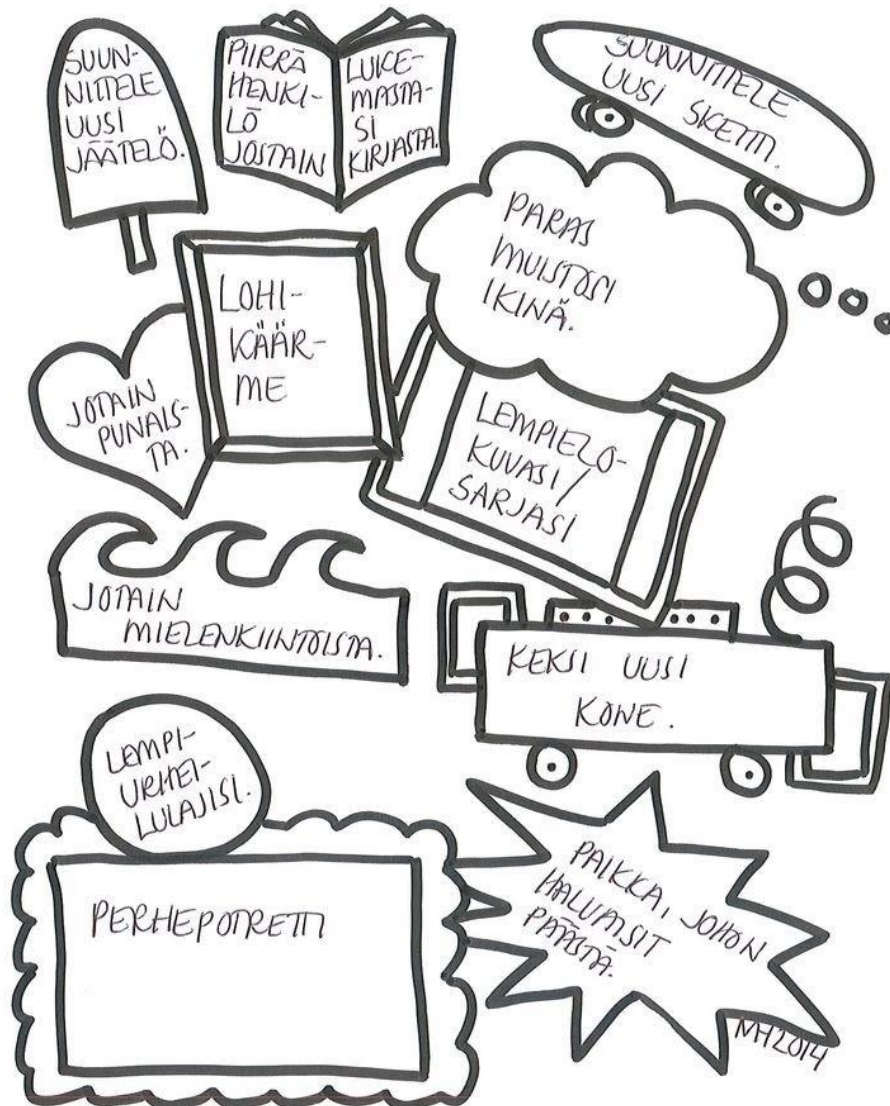 SUUN-
NITTELE
UUSI
JÄÄTELÖ.
PIIRRÄ
HENKI-
LÖ
JOSTAIN
LUKE-
MASTA-
SI
KIRJASTA.
SUUNNITTELE
UUSI SKETTI.
PARAS
MUISTOSI
IKINÄ.
LOHI-
KÄÄR-
ME
JOTAIN
PUNAIS-
TA.
LEMPIELO-
KUVASI/
SARJASI
JOTAIN
MIELENKIINTOISTA.
KEKSI UUSI
KONE.
LEMPI-
URHEI-
LULAJISI.
PERHEPOTRETTI
PAIKKA, JOHON
HALUAISIT
PÄÄSTÄ.
MH2014